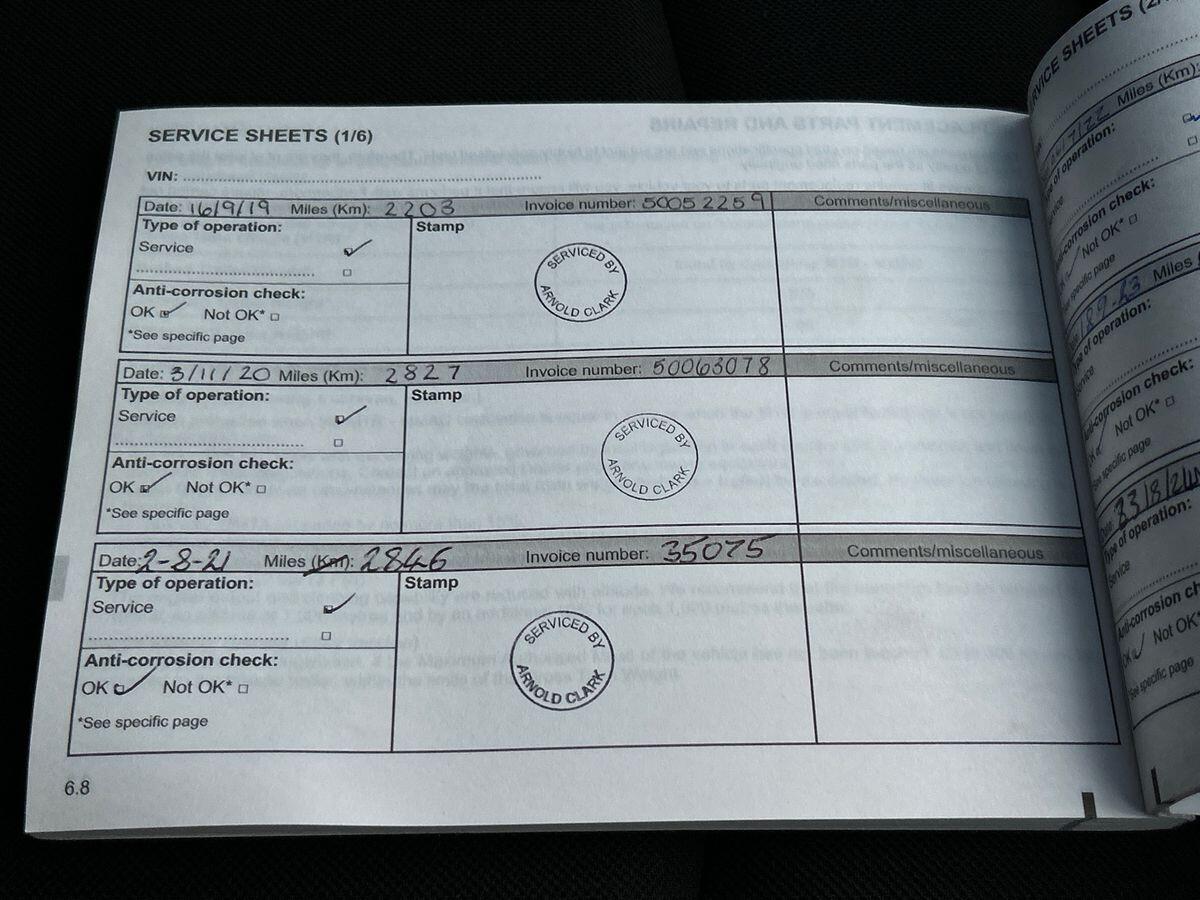 SERVICE SHEETS (1/6)
VIN: ........................................................................
Date: 16/9/19 Miles (Km): 2203 Invoice number: 50052259 Comments/miscellaneous
Type of operation: Stamp
Service
SERVICED BY
ARNOLD CLARK
Anti-corrosion check:
OK Not OK*
*See specific page
Date: 3/11/20 Miles (Km): 2827 Invoice number: 50063078 Comments/miscellaneous
Type of operation: Stamp
Service
SERVICED BY
ARNOLD CLARK
Anti-corrosion check:
OK Not OK*
*See specific page
Date: 2-8-21 Miles (Km): 2846 Invoice number: 35075 Comments/miscellaneous
Type of operation: Stamp
Service
SERVICED BY
ARNOLD CLARK
Anti-corrosion check:
OK Not OK*
*See specific page
6.8
SERVICE SHEETS
Miles (Km):
of operation:
corrosion check:
Not OK*
specific page
Miles
of operation:
corrosion check:
Not OK*
specific page
23/8/24
Type of operation:
Service
Anti-corrosion
OK Not OK*
*See specific page